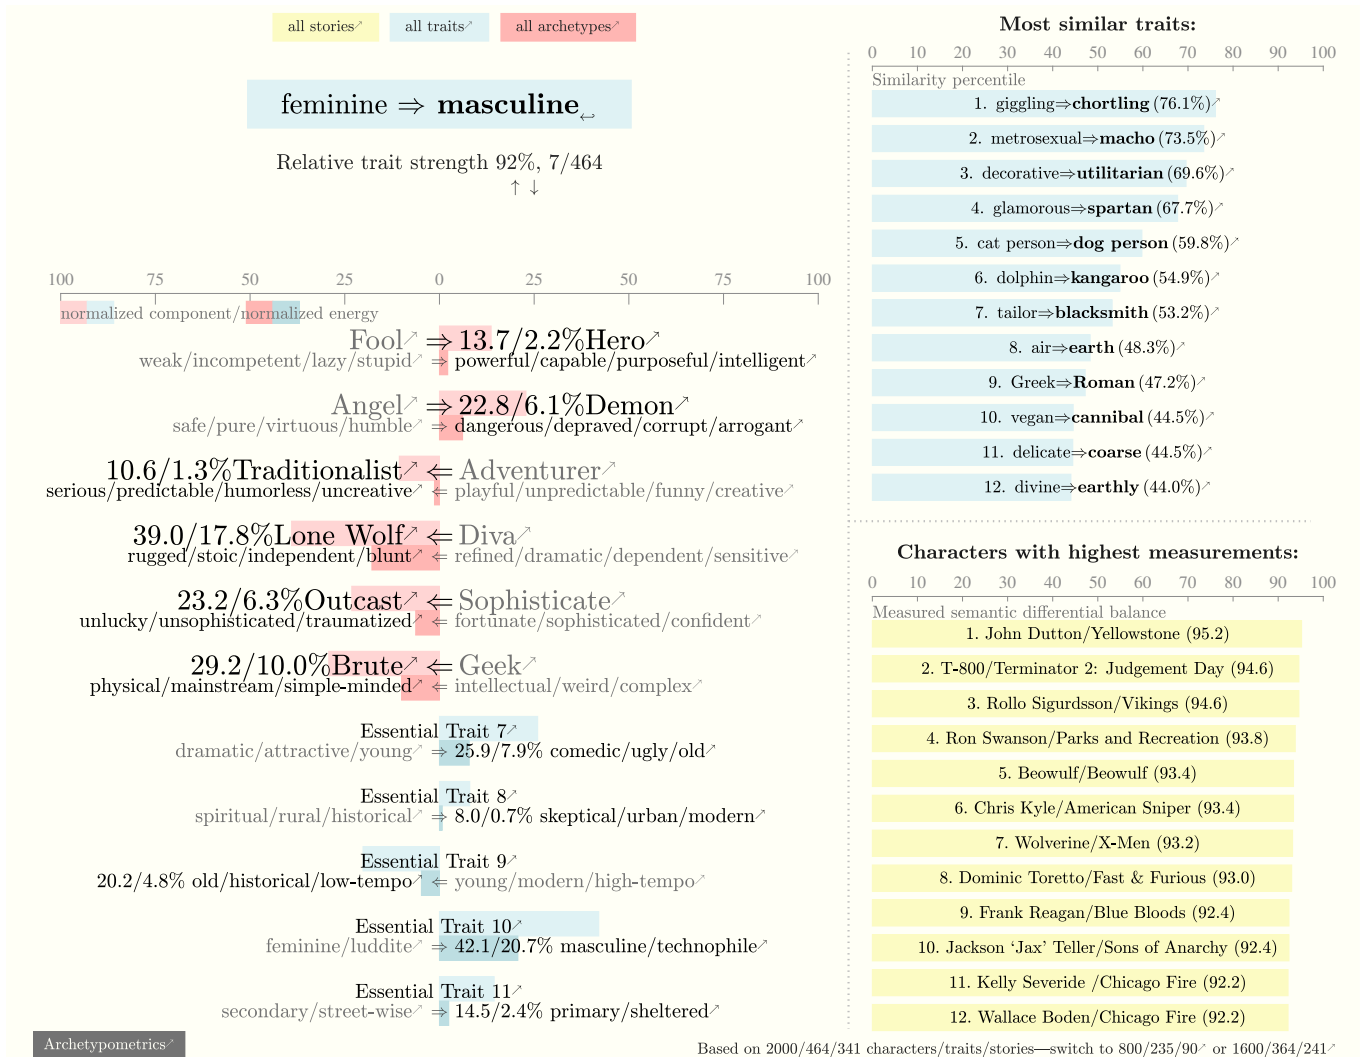 all stories↗ all traits↗ all archetypes↗
feminine ⇒ masculine↩
Relative trait strength 92%, 7/464
↑ ↓
100 75 50 25 0 25 50 75 100
normalized component/normalized energy
Fool↗ ⇒ 13.7/2.2%Hero↗
weak/incompetent/lazy/stupid↗ ⇒ powerful/capable/purposeful/intelligent↗
Angel↗ ⇒ 22.8/6.1%Demon↗
safe/pure/virtuous/humble↗ ⇒ dangerous/depraved/corrupt/arrogant↗
10.6/1.3%Traditionalist↗ ⇐ Adventurer↗
serious/predictable/humorless/uncreative↗ ⇐ playful/unpredictable/funny/creative↗
39.0/17.8%Lone Wolf↗ ⇐ Diva↗
rugged/stoic/independent/blunt↗ ⇐ refined/dramatic/dependent/sensitive↗
23.2/6.3%Outcast↗ ⇐ Sophisticate↗
unlucky/unsophisticated/traumatized↗ ⇐ fortunate/sophisticated/confident↗
29.2/10.0%Brute↗ ⇐ Geek↗
physical/mainstream/simple-minded↗ ⇐ intellectual/weird/complex↗
Essential Trait 7↗
dramatic/attractive/young↗ ⇒ 25.9/7.9% comedic/ugly/old↗
Essential Trait 8↗
spiritual/rural/historical↗ ⇒ 8.0/0.7% skeptical/urban/modern↗
Essential Trait 9↗
20.2/4.8% old/historical/low-tempo↗ ⇐ young/modern/high-tempo↗
Essential Trait 10↗
feminine/luddite↗ ⇒ 42.1/20.7% masculine/technophile↗
Essential Trait 11↗
secondary/street-wise↗ ⇒ 14.5/2.4% primary/sheltered↗
Archetypometrics↗
Most similar traits:
0 10 20 30 40 50 60 70 80 90 100
Similarity percentile
1. giggling⇒chortling (76.1%)↗
2. metrosexual⇒macho (73.5%)↗
3. decorative⇒utilitarian (69.6%)↗
4. glamorous⇒spartan (67.7%)↗
5. cat person⇒dog person (59.8%)↗
6. dolphin⇒kangaroo (54.9%)↗
7. tailor⇒blacksmith (53.2%)↗
8. air⇒earth (48.3%)↗
9. Greek⇒Roman (47.2%)↗
10. vegan⇒cannibal (44.5%)↗
11. delicate⇒coarse (44.5%)↗
12. divine⇒earthly (44.0%)↗
Characters with highest measurements:
0 10 20 30 40 50 60 70 80 90 100
Measured semantic differential balance
1. John Dutton/Yellowstone (95.2)
2. T-800/Terminator 2: Judgement Day (94.6)
3. Rollo Sigurdsson/Vikings (94.6)
4. Ron Swanson/Parks and Recreation (93.8)
5. Beowulf/Beowulf (93.4)
6. Chris Kyle/American Sniper (93.4)
7. Wolverine/X-Men (93.2)
8. Dominic Toretto/Fast & Furious (93.0)
9. Frank Reagan/Blue Bloods (92.4)
10. Jackson ‘Jax’ Teller/Sons of Anarchy (92.4)
11. Kelly Severide /Chicago Fire (92.2)
12. Wallace Boden/Chicago Fire (92.2)
Based on 2000/464/341 characters/traits/stories—switch to 800/235/90↗ or 1600/364/241↗